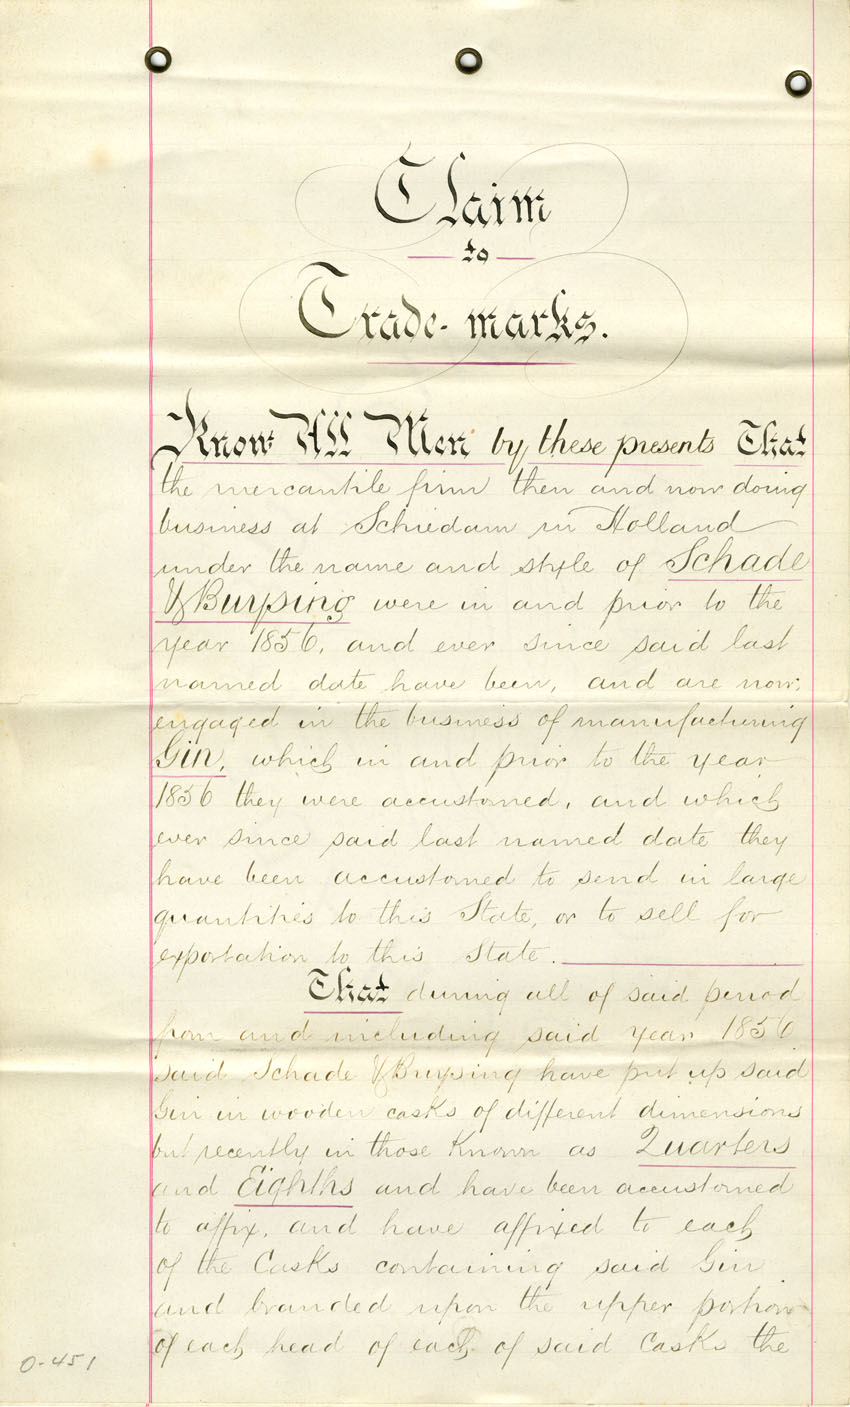 Claim
to
Trade-marks.
Know All Men by these presents That
the mercantile firm then and now doing
business at Schiedam in Holland
under the name and style of Schade
& Buysing were in and prior to the
year 1856, and ever since said last
named date have been, and are now,
engaged in the business of manufacturing
Gin, which in and prior to the year
1856 they were accustomed, and which
ever since said last named date they
have been accustomed to send in large
quantities to this State, or to sell for
exportation to this State.
That during all of said period
from and including said year 1856
said Schade & Buysing have put up said
Gin in wooden casks of different dimensions
but recently in those Known as Quarters
and Eighths and have been accustomed
to affix, and have affixed to each
of the Casks containing said Gin
and branded upon the upper portion
of each head of each of said Casks the
0-451